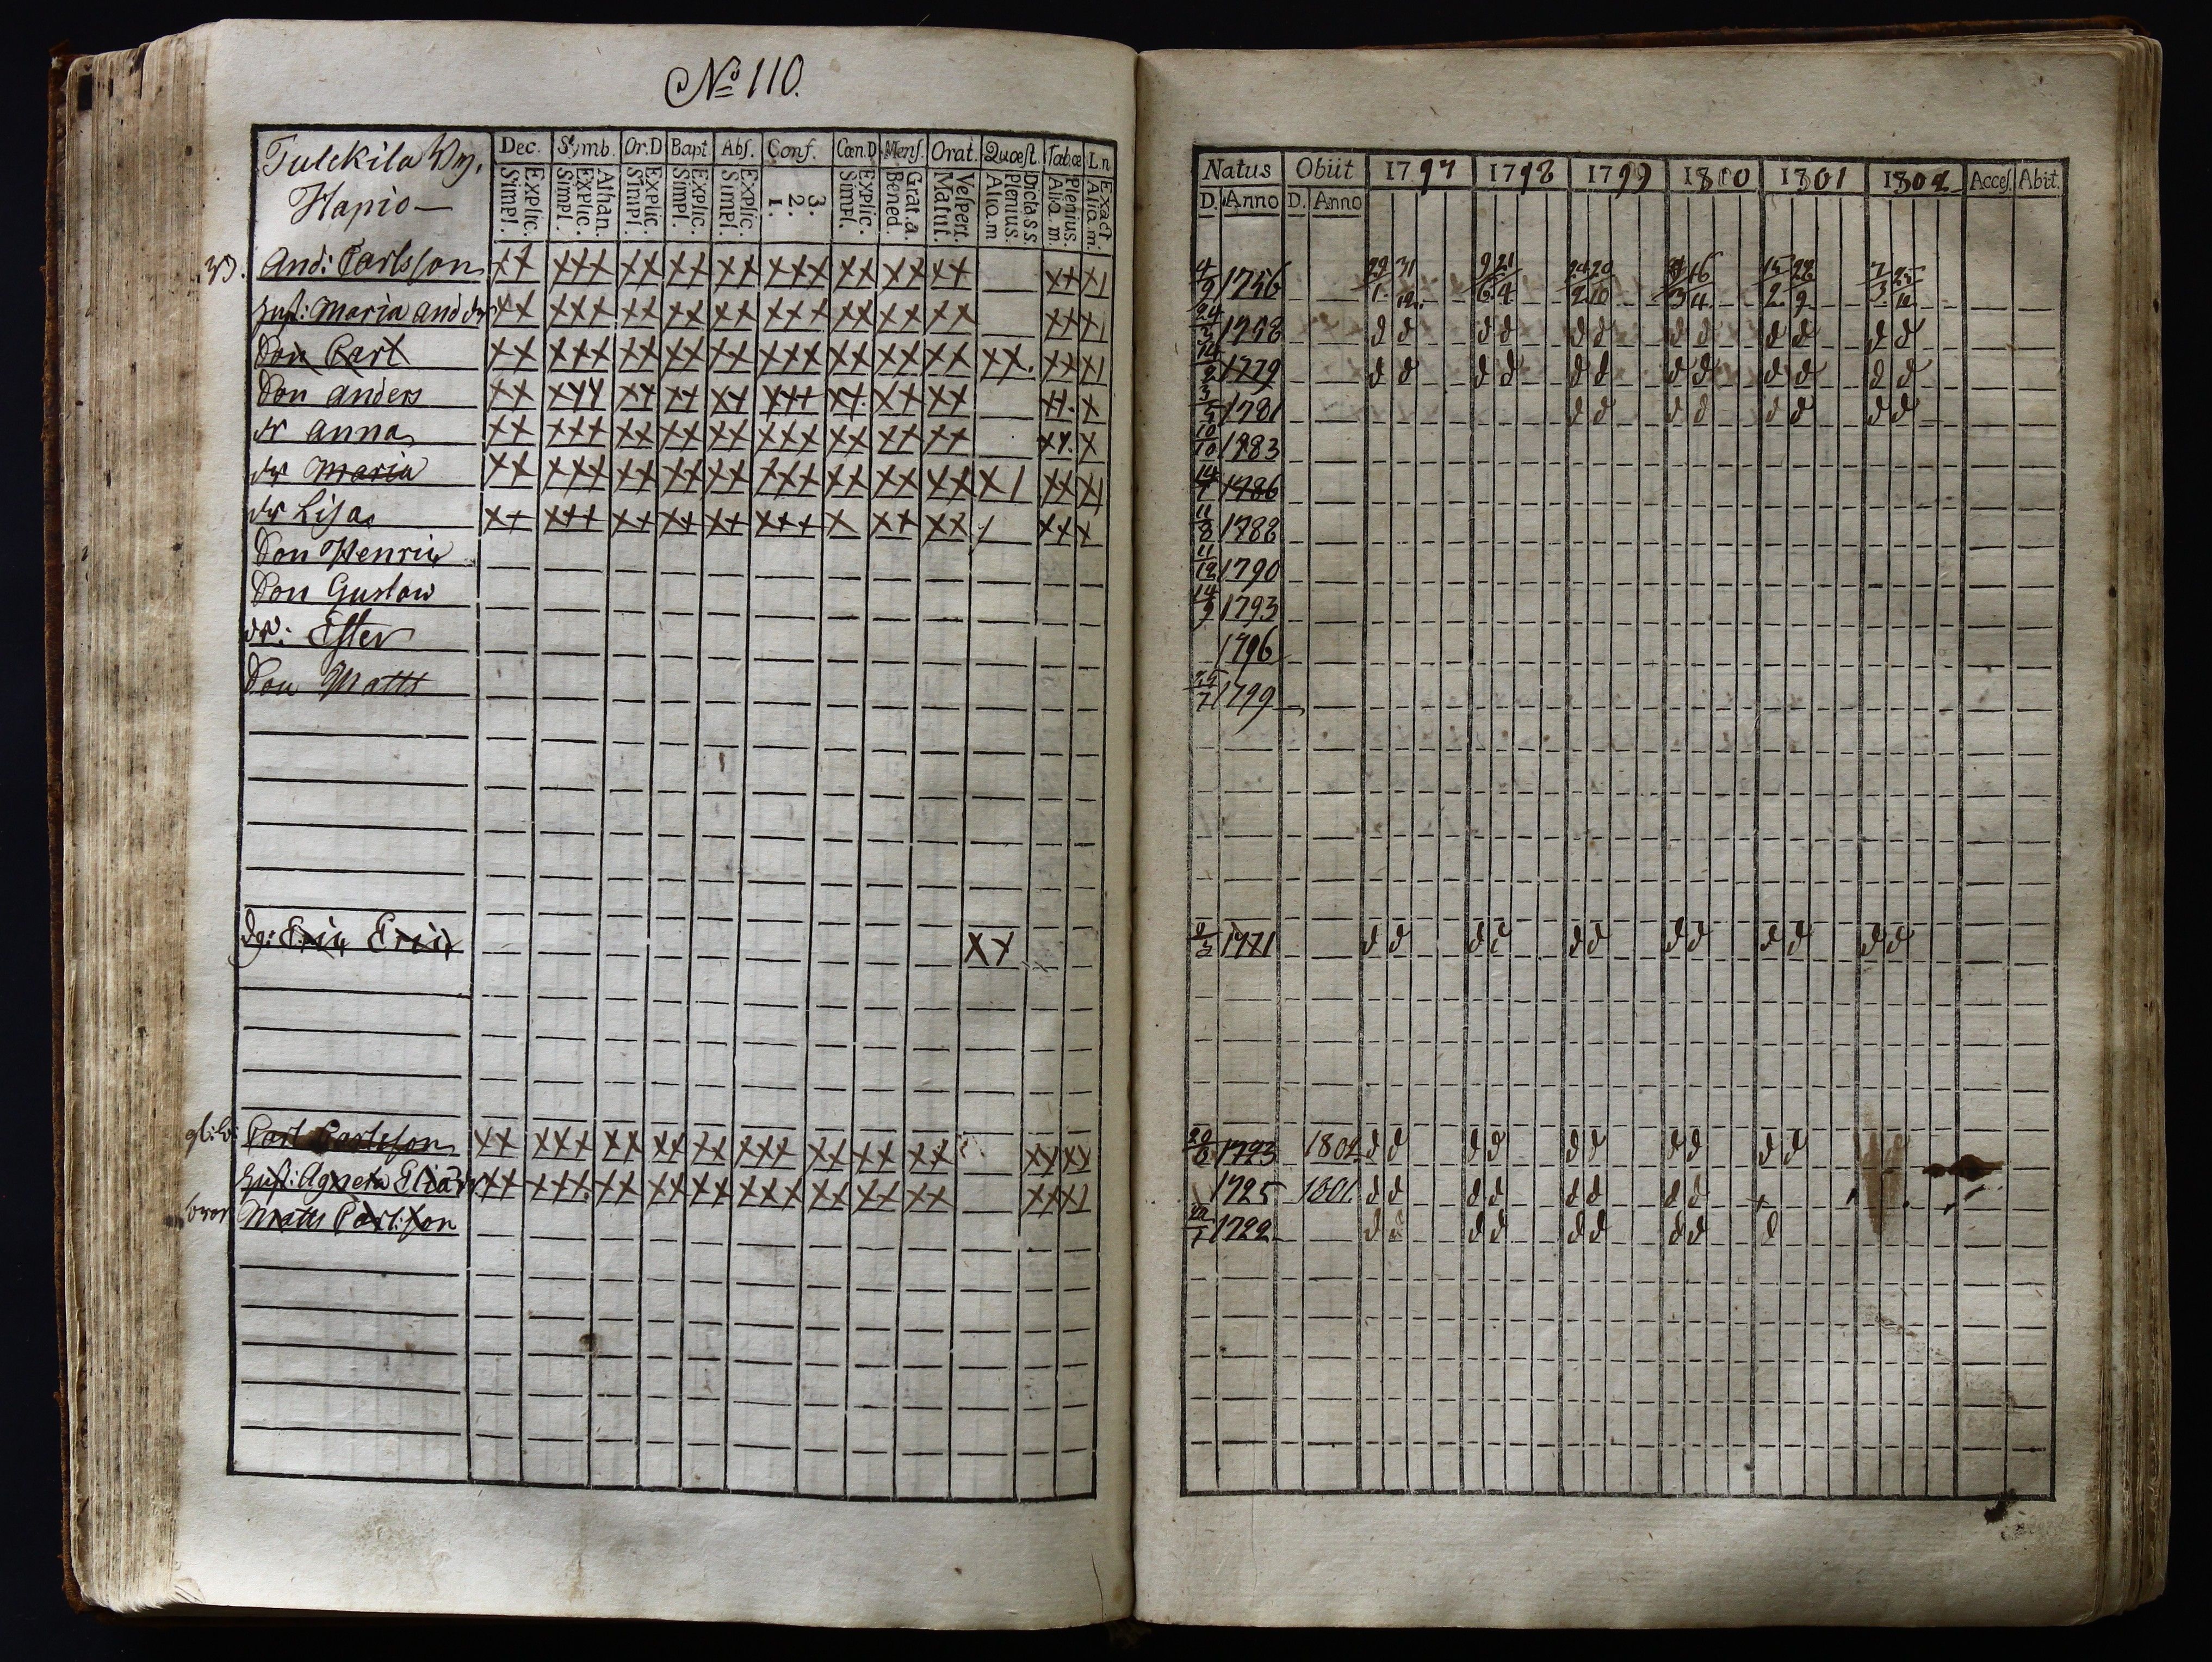 No 110.
Tulckila By.
Hapio
Dec. Symb. Or.D Bapt Abs. Conf. Cœn.D Mens. Orat. Quæst. Tab.œ L.n
Explic. Simpl. Athan. Explic. Simpl. Explic. Simpl. Explic. Simpl. Explic. Simpl. 3. 2. 1. Explic. Simpl. Grat.a. Bened. Vespert. Matut. Dicta.s s Plenius. Aliq.m Plenius. Aliq.m. Exact. Aliq.m.
And: Carlsson
hust: Maria And dr
Son Carl
Son Anders
dr Anna
dr Maria
dr Lisa
Son Henric
Son Gustaw
dr: Ester
Son Matts
dg: Eric Eric
Carl Carlsson
hust: Agneta Elia dr
bror Matts Carlsson
Natus Obiit 1797 1798 1799 1800 1801 1802 Acces. Abit.
D. Anno D. Anno
4/9 1756 29/1 31/12 9/6 21/4 24/2 20/10 16/4 15/2 22/9 7/3 25/10
24/3 1758 d d d d d d d d d d d d
1779 d d d d d d d d d d d d
3/5 1781 d d d d d d d d
10/10 1783
14/7 1786
11/8 1788
11/12 1790
14/9 1793
1796
1799
1771 d d d d d d d d d d d d
1723 1802 d d d d d d d d d d
1725 1801 d d d d d d d d +
1722 d d d d d d d d d